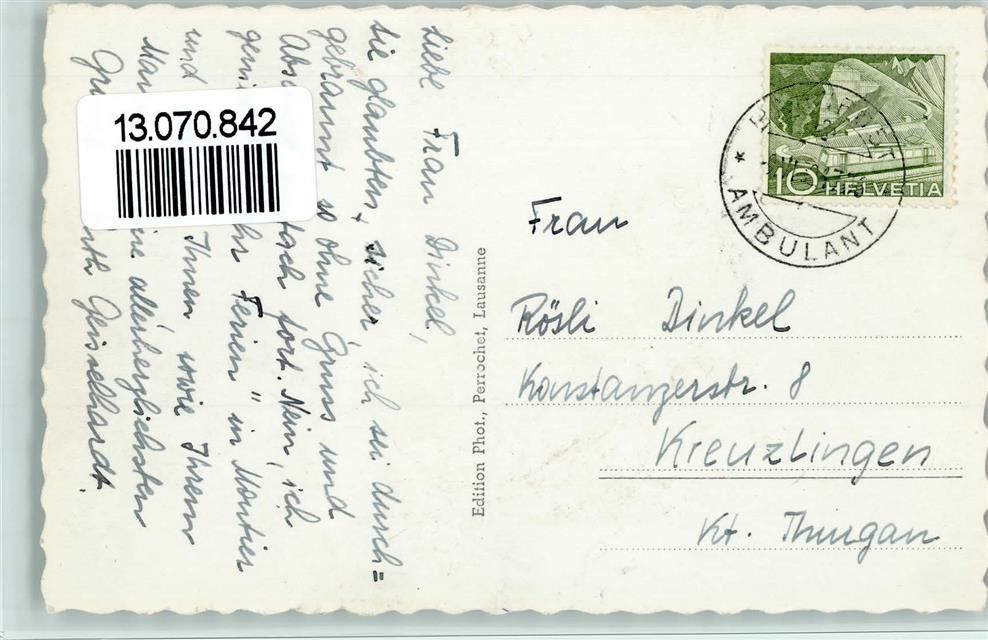 Liebe Frau Dinkel,
Sie glaubten + sicher ich sei durch=
gebrannt so ohne Gruss und
fort. Nein, ich
Ferien " in Moutier
und Ihnen sowie Ihrem
allerherzlichsten
13.070.842
Edition Phot., Perrochet, Lausanne
10 HELVETIA
AMBULANT
Frau
Rösli Dinkel
Konstanzerstr. 8
Kreuzlingen
Kt. Thurgau